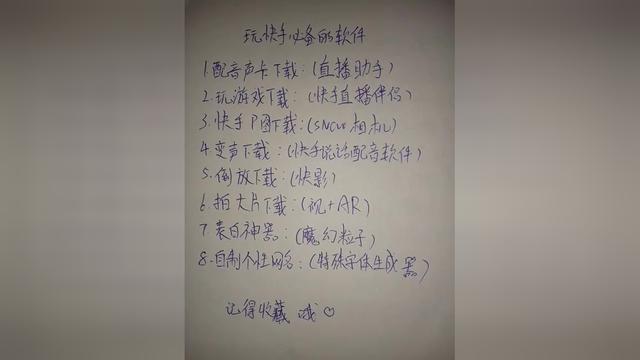 玩快手必备的软件
1.配音声卡下载:(直播助手)
2.玩游戏下载:(快手直播伴侣)
3.快手P图下载:(SNOW相机)
4.变声下载:(快手说话配音软件)
5.倒放下载:(快影)
6.拍大片下载:(视+AR)
7.表白神器:(魔幻粒子)
8.自制个性网名:(特殊字体生成器)
记得收藏哦♡